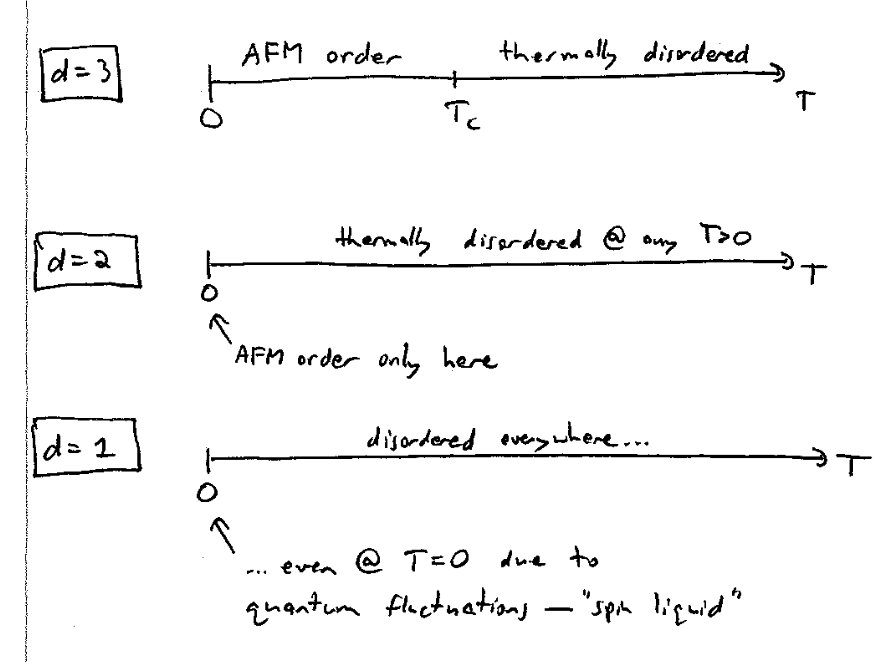 d=3
AFM order
thermally disordered
0
Tc
T
d=2
thermally disordered @ any T>0
T
0
AFM order only here
d=1
disordered everywhere...
T
0
... even @ T=0 due to
quantum fluctuations — "spin liquid"